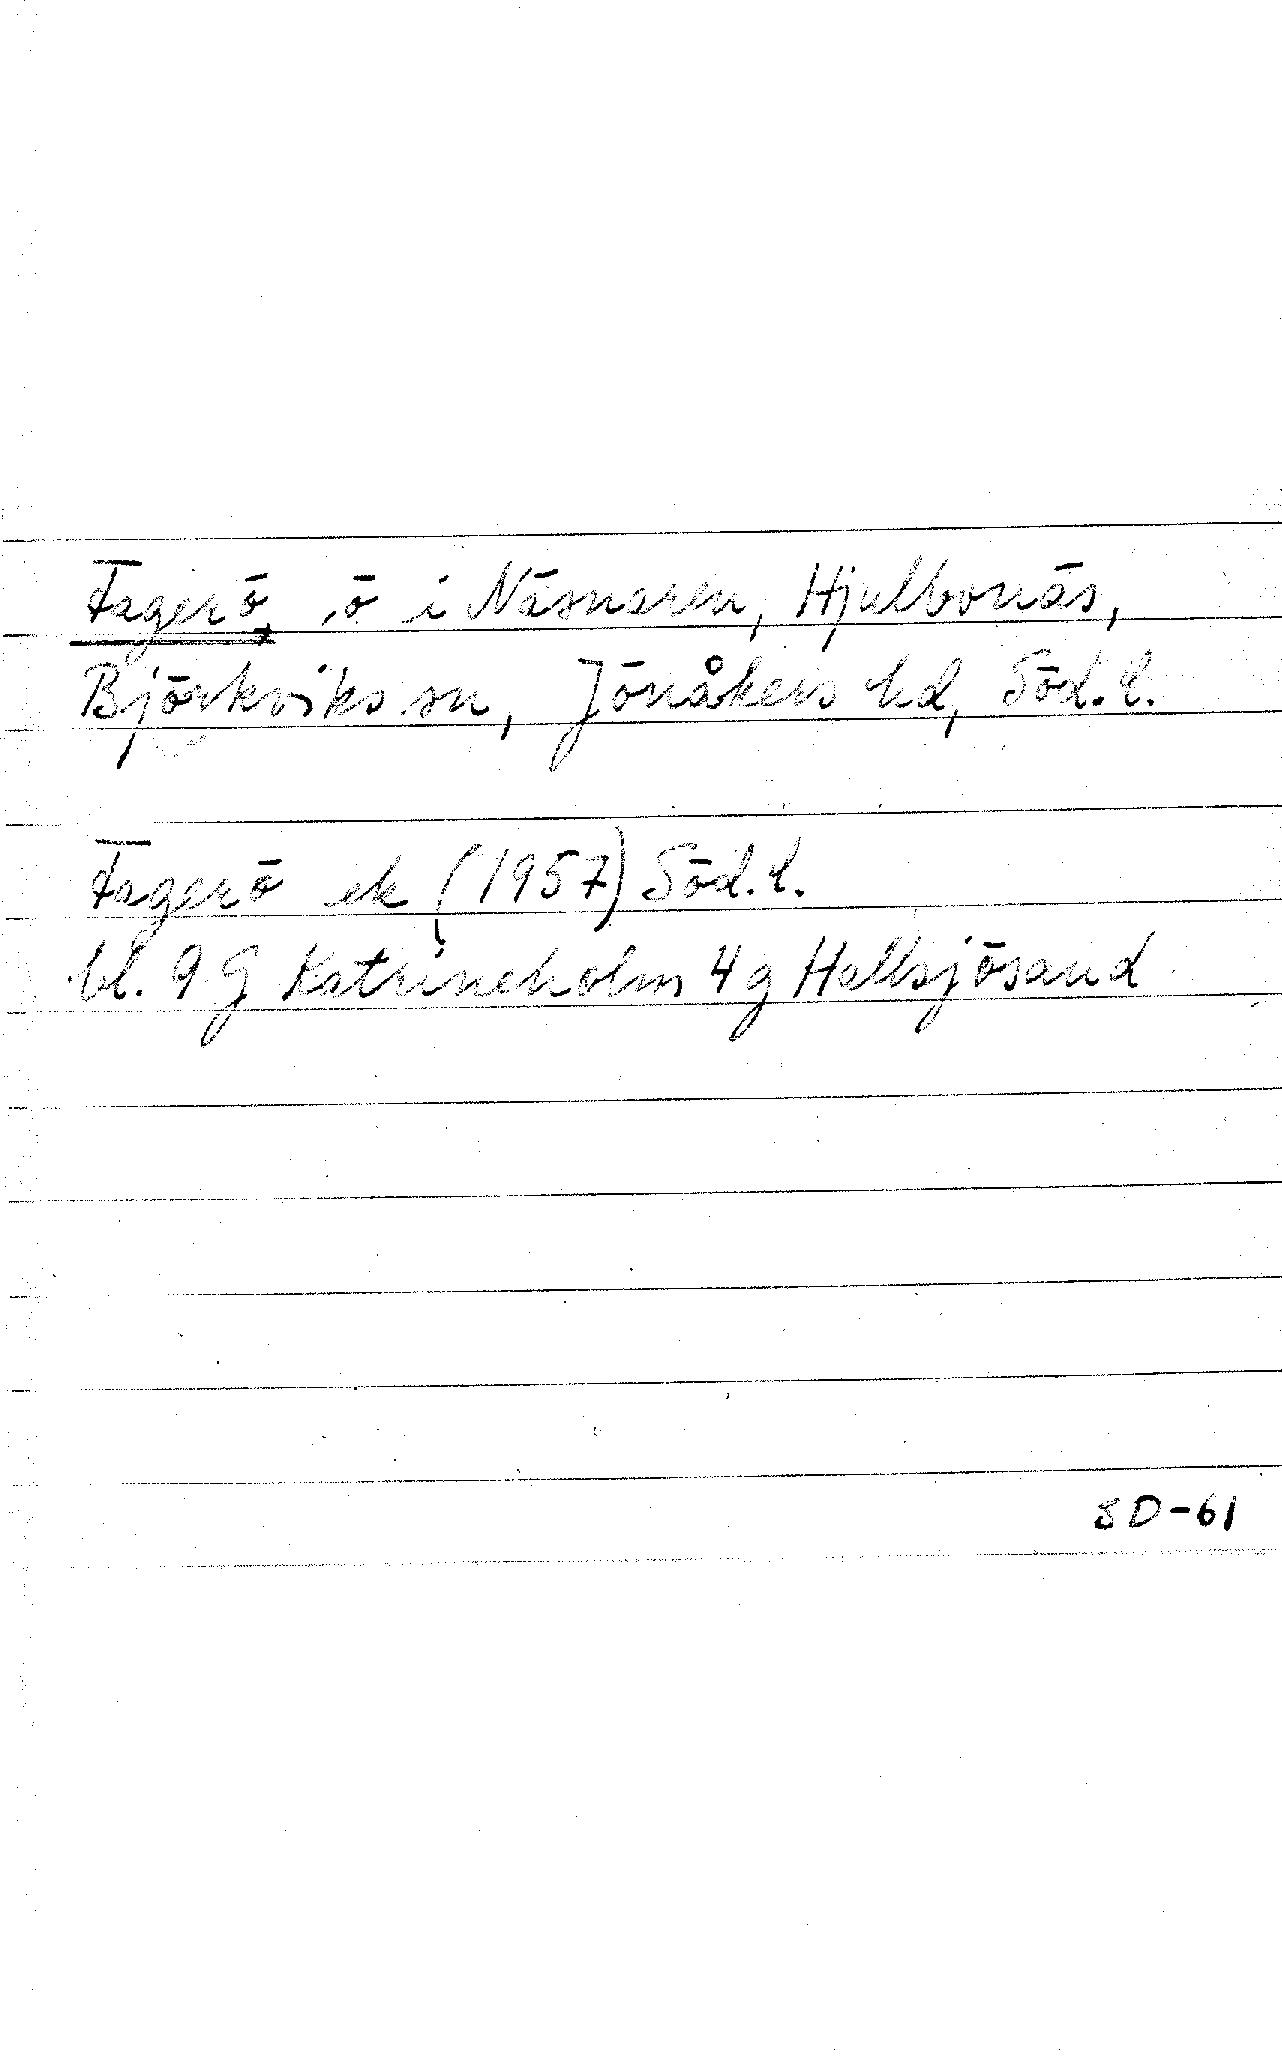 Fagerö, ö i Näsnaren, Hjulbonäs,
Björkviks sn, Jönåkers hd, Söd.l.
Fagerö ek (1957) Söd.l.
bl. 9 G Katrineholm 4 g Hallsjösand
SD-61